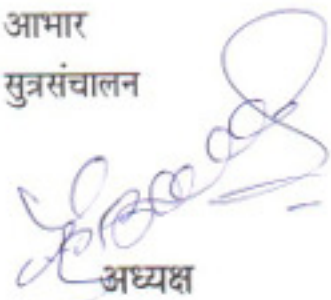 आभार
सुत्रसंचालन
अध्यक्ष